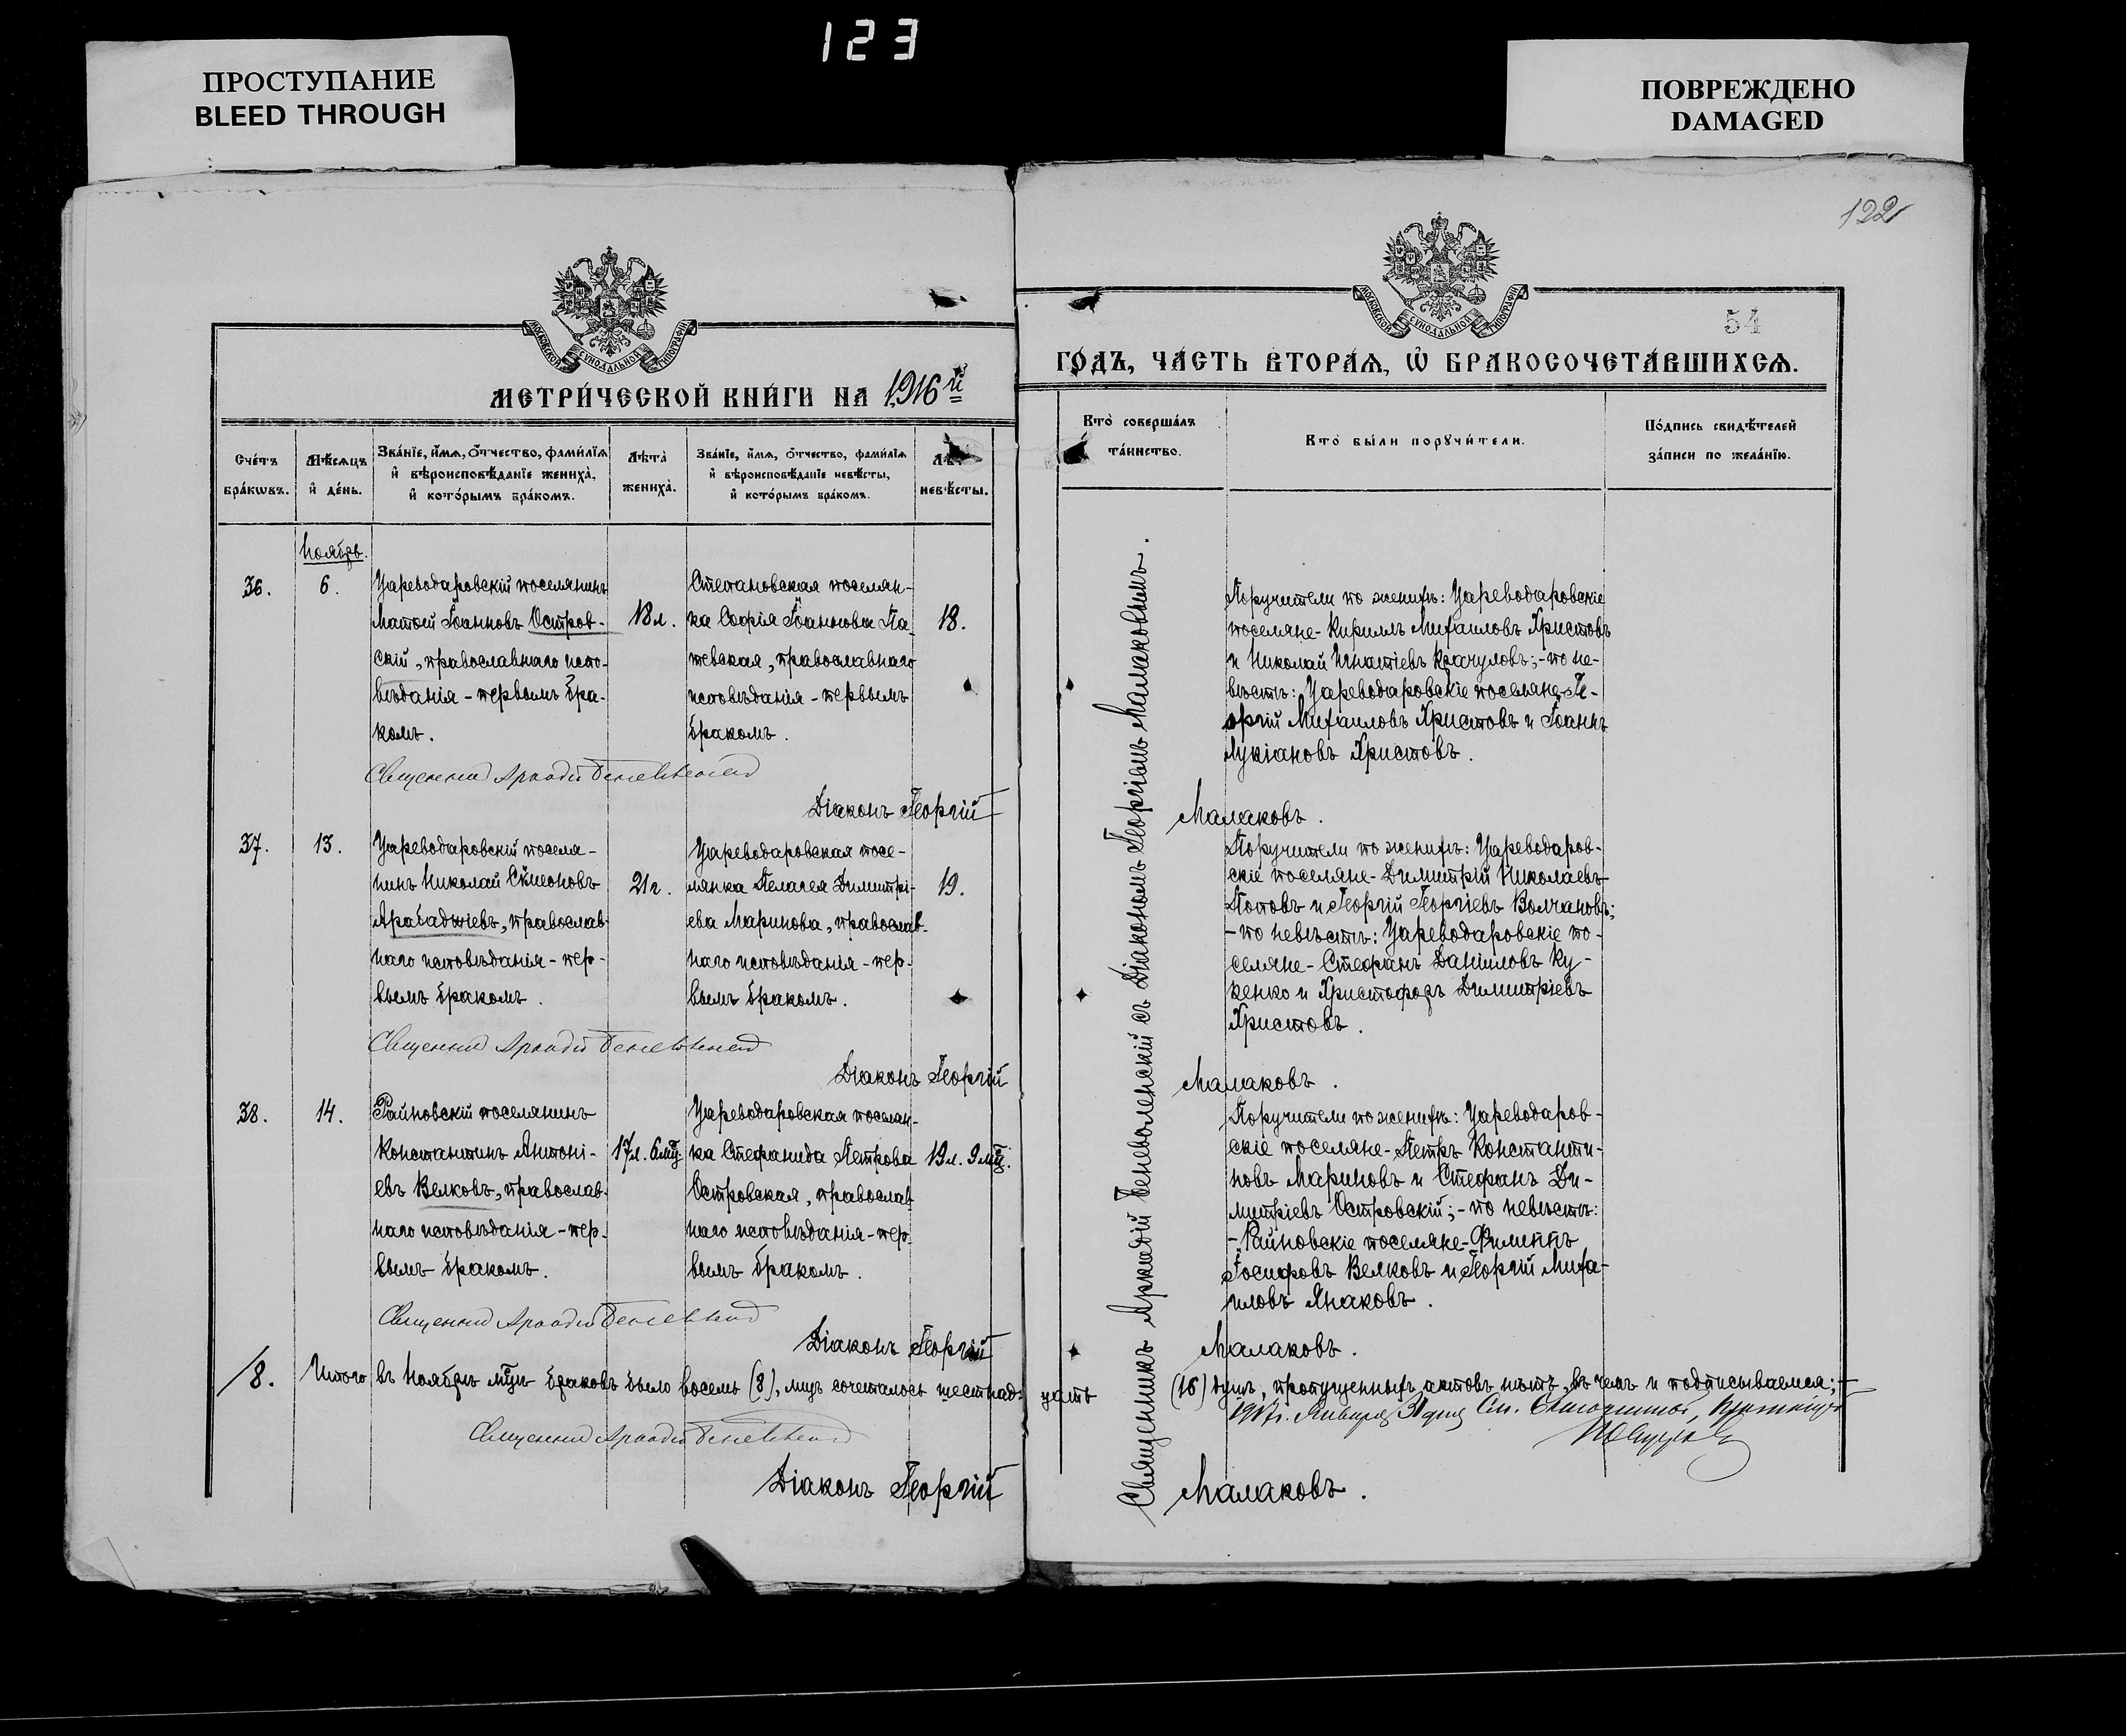 123
ПРОСТУПАНИЕ
BLEED THROUGH
ПОВРЕЖДЕНО
DAMAGED
122
54
МОСКОВСКОЙ СѴНОДАЛЬНОЙ ТИПОГРАФІИ
МОСКОВСКОЙ СѴНОДАЛЬНОЙ ТИПОГРАФІИ
МЕТРИ́ЧЕСКОЙ КНИ́ГИ НА 1916й
ГО́ДЪ, ЧА́СТЬ ВТОРА́Ѧ, Ѽ БРАКОСОЧЕТА́ВШИХСѦ.
Сче́тъ
бра́кѡвъ.
Мѣ́сѧцъ
и҆ де́нь.
Зва́нїе, и҆́мѧ, ѻ҆́тчество, фами́лїѧ
и҆ вѣроисповѣ́данїе жениха̀,
и҆ кото́рымъ бра́комъ.
Лѣта̀
жениха̀.
Зва́нїе, и҆́мѧ, ѻ҆́тчество, фами́лїѧ
и҆ вѣроисповѣ́данїе невѣ́сты,
и҆ кото́рымъ бра́комъ.
невѣ́сты.
Кто̀ соверша́лъ
та́инство.
Кто̀ бы́ли порꙋчи́тели.
По́дпись свидѣ́телей
за́писи по жела́нїю.
Ноябрь.
36.
6.
Цареводаровскій поселянинъ
Матѳей Іоанновъ Остров-
скій, православнаго испо-
вѣданія - первымъ бра-
комъ.
18 л.
Степановская поселян-
ка Софія Іоаннова Па-
тевская, православнаго
исповѣданія - первымъ
бракомъ.
18.
Поручители по женихѣ: Цареводаровскіе
поселяне - Кириллъ Михаиловъ Христовъ
и Николай Игнатіевъ Крачуловъ; - по не-
вѣстѣ: Цареводаровскіе поселяне - Ге-
оргій Михаиловъ Христовъ и Іоаннъ
Лукіановъ Христовъ.
Священник Аркадій Беневоленский
Діаконъ Георгій Малаковъ.
37.
13.
Цареводаровскій поселя-
нинъ Николай Симеоновъ
Арабаджіевъ, православ-
наго исповѣданія - пер-
вымъ бракомъ.
21 г.
Цареводаровская посе-
лянка Пелагея Димитрі-
ева Маринова, православ-
наго исповѣданія - пер-
вымъ бракомъ.
19.
Поручители по женихѣ: Цареводаров-
скіе поселяне - Димитрій Николаевъ
Поповъ и Георгій Георгіевъ Волчановъ;
- по невѣстѣ: Цареводаровскіе по-
селяне - Стефанъ Даніиловъ Ку-
кенко и Христофоръ Димитріевъ
Христовъ.
Священник Аркадій Беневоленский
Діаконъ Георгій Малаковъ.
38.
14.
Райновскій поселянинъ
Константинъ Антоні-
евъ Велковъ, православ-
наго исповѣданія - пер-
вымъ бракомъ.
17 л. 6 мц.
Цареводаровская поселян-
ка Стефанида Петрова
Островская, православ-
наго исповѣданія - пер-
вымъ бракомъ.
19 л. 9 мц.
Поручители по женихѣ: Цареводаров-
скіе поселяне - Петръ Константи-
новъ Мариновъ и Стефанъ Ди-
митріевъ Островскій; - по невѣстѣ:
- Райновскіе поселяне - Филиппъ
Іосифовъ Велковъ и Георгій Миха-
иловъ Янаковъ.
Священник Аркадій Беневоленский
Діаконъ Георгій Малаковъ.
Священникъ Аркадій Беневоленскій съ Діакономъ Георгіемъ Малаковымъ.
/8.
Итого въ Ноябрѣ мцѣ браковъ было восемь (8), лицъ сочеталось шестнадцать (16) душъ, пропущенныхъ актовъ нѣтъ, въ чемъ и подписываемся; -
1917 г. Января 31 дня См. Благочинный,
Священник Аркадій Беневоленский
Діаконъ Георгій Малаковъ.